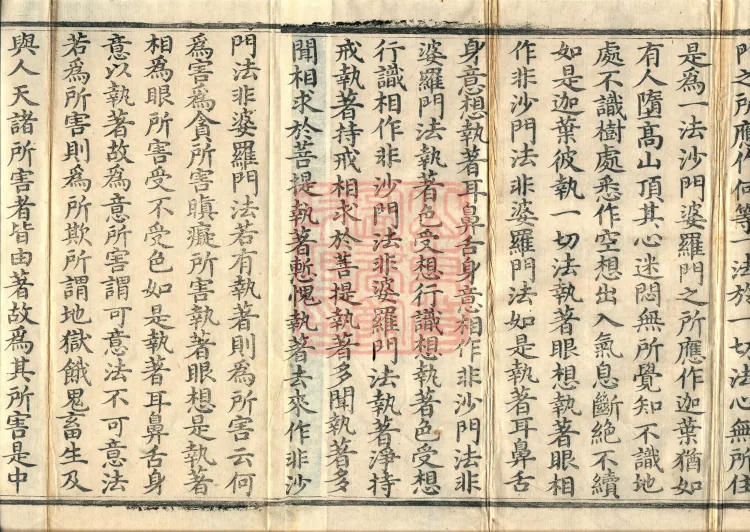 門之所應作何等一法於一切法心無所住
是為一法沙門婆羅門之所應作迦葉猶如
有人墮高山頂其心迷悶無所覺知不識地
處不識樹處悉作空想出入氣息斷絕不續
如是迦葉彼執一切法執著眼想執著眼相
作非沙門法非婆羅門法如是執著耳鼻舌
身意想執著耳鼻舌身意相作非沙門法非
婆羅門法執著色受想行識想執著色受想
行識相作非沙門法非婆羅門法執著淨持
戒執著持戒相求於菩提執著多聞執著多
聞相求於菩提執著慙愧執著去來作非沙
門法非婆羅門法若有執著則為所害云何
為害為貪所害瞋癡所害執著眼想是執著
相為眼所害受不受色如是執著耳鼻舌身
意以執著故為意所害謂可意法不可意法
若為所害則為所欺所謂地獄餓鬼畜生及
與人天諸所害者皆由著故為其所害是中